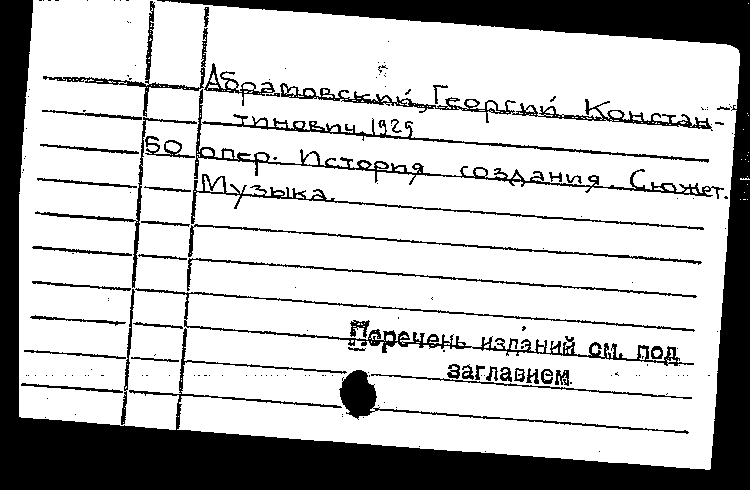 Абрамовский, Георгий Констан-
тинович, 1929
50 опер. История создания. Сюжет.
Музыка.
Перечень изданий см. под
заглавием